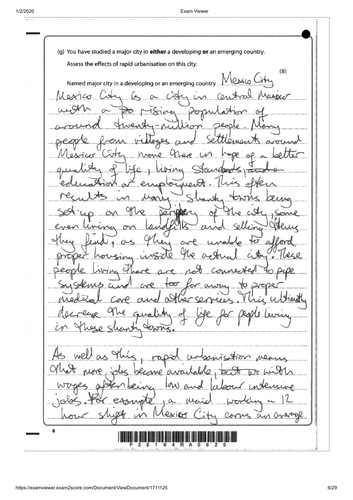 1/2/2020
Exam Viewer
(g) You have studied a major city in either a developing or an emerging country.
Assess the effects of rapid urbanisation on this city.
(8)
Named major city in a developing or an emerging country Mexico City
Mexico City is a city in central Mexico
with a rising population of
around twenty-million people. Many
people from villages and settlements around
Mexico City move there in hope of a better
quality of life, living standards,
education or employment. This often
results in many shanty towns being
set up on the of the city, some
even living on landfills and selling items
they find, as they are unable to afford
proper housing inside the actual city. These
people living there are not connected to pipe
systems and are too far away to proper
medical care and other services. This ultimatly
decrease the quality of life for people living
in these shanty towns.
As well as this, rapid urbanisation means
that more jobs become available, with
wages often being low and labour intensive
jobs. For example, a maid working a 12
hour shift in Mexico City earns an average
6
https://examviewer.exam2score.com/Document/ViewDocument/1711125
6/29